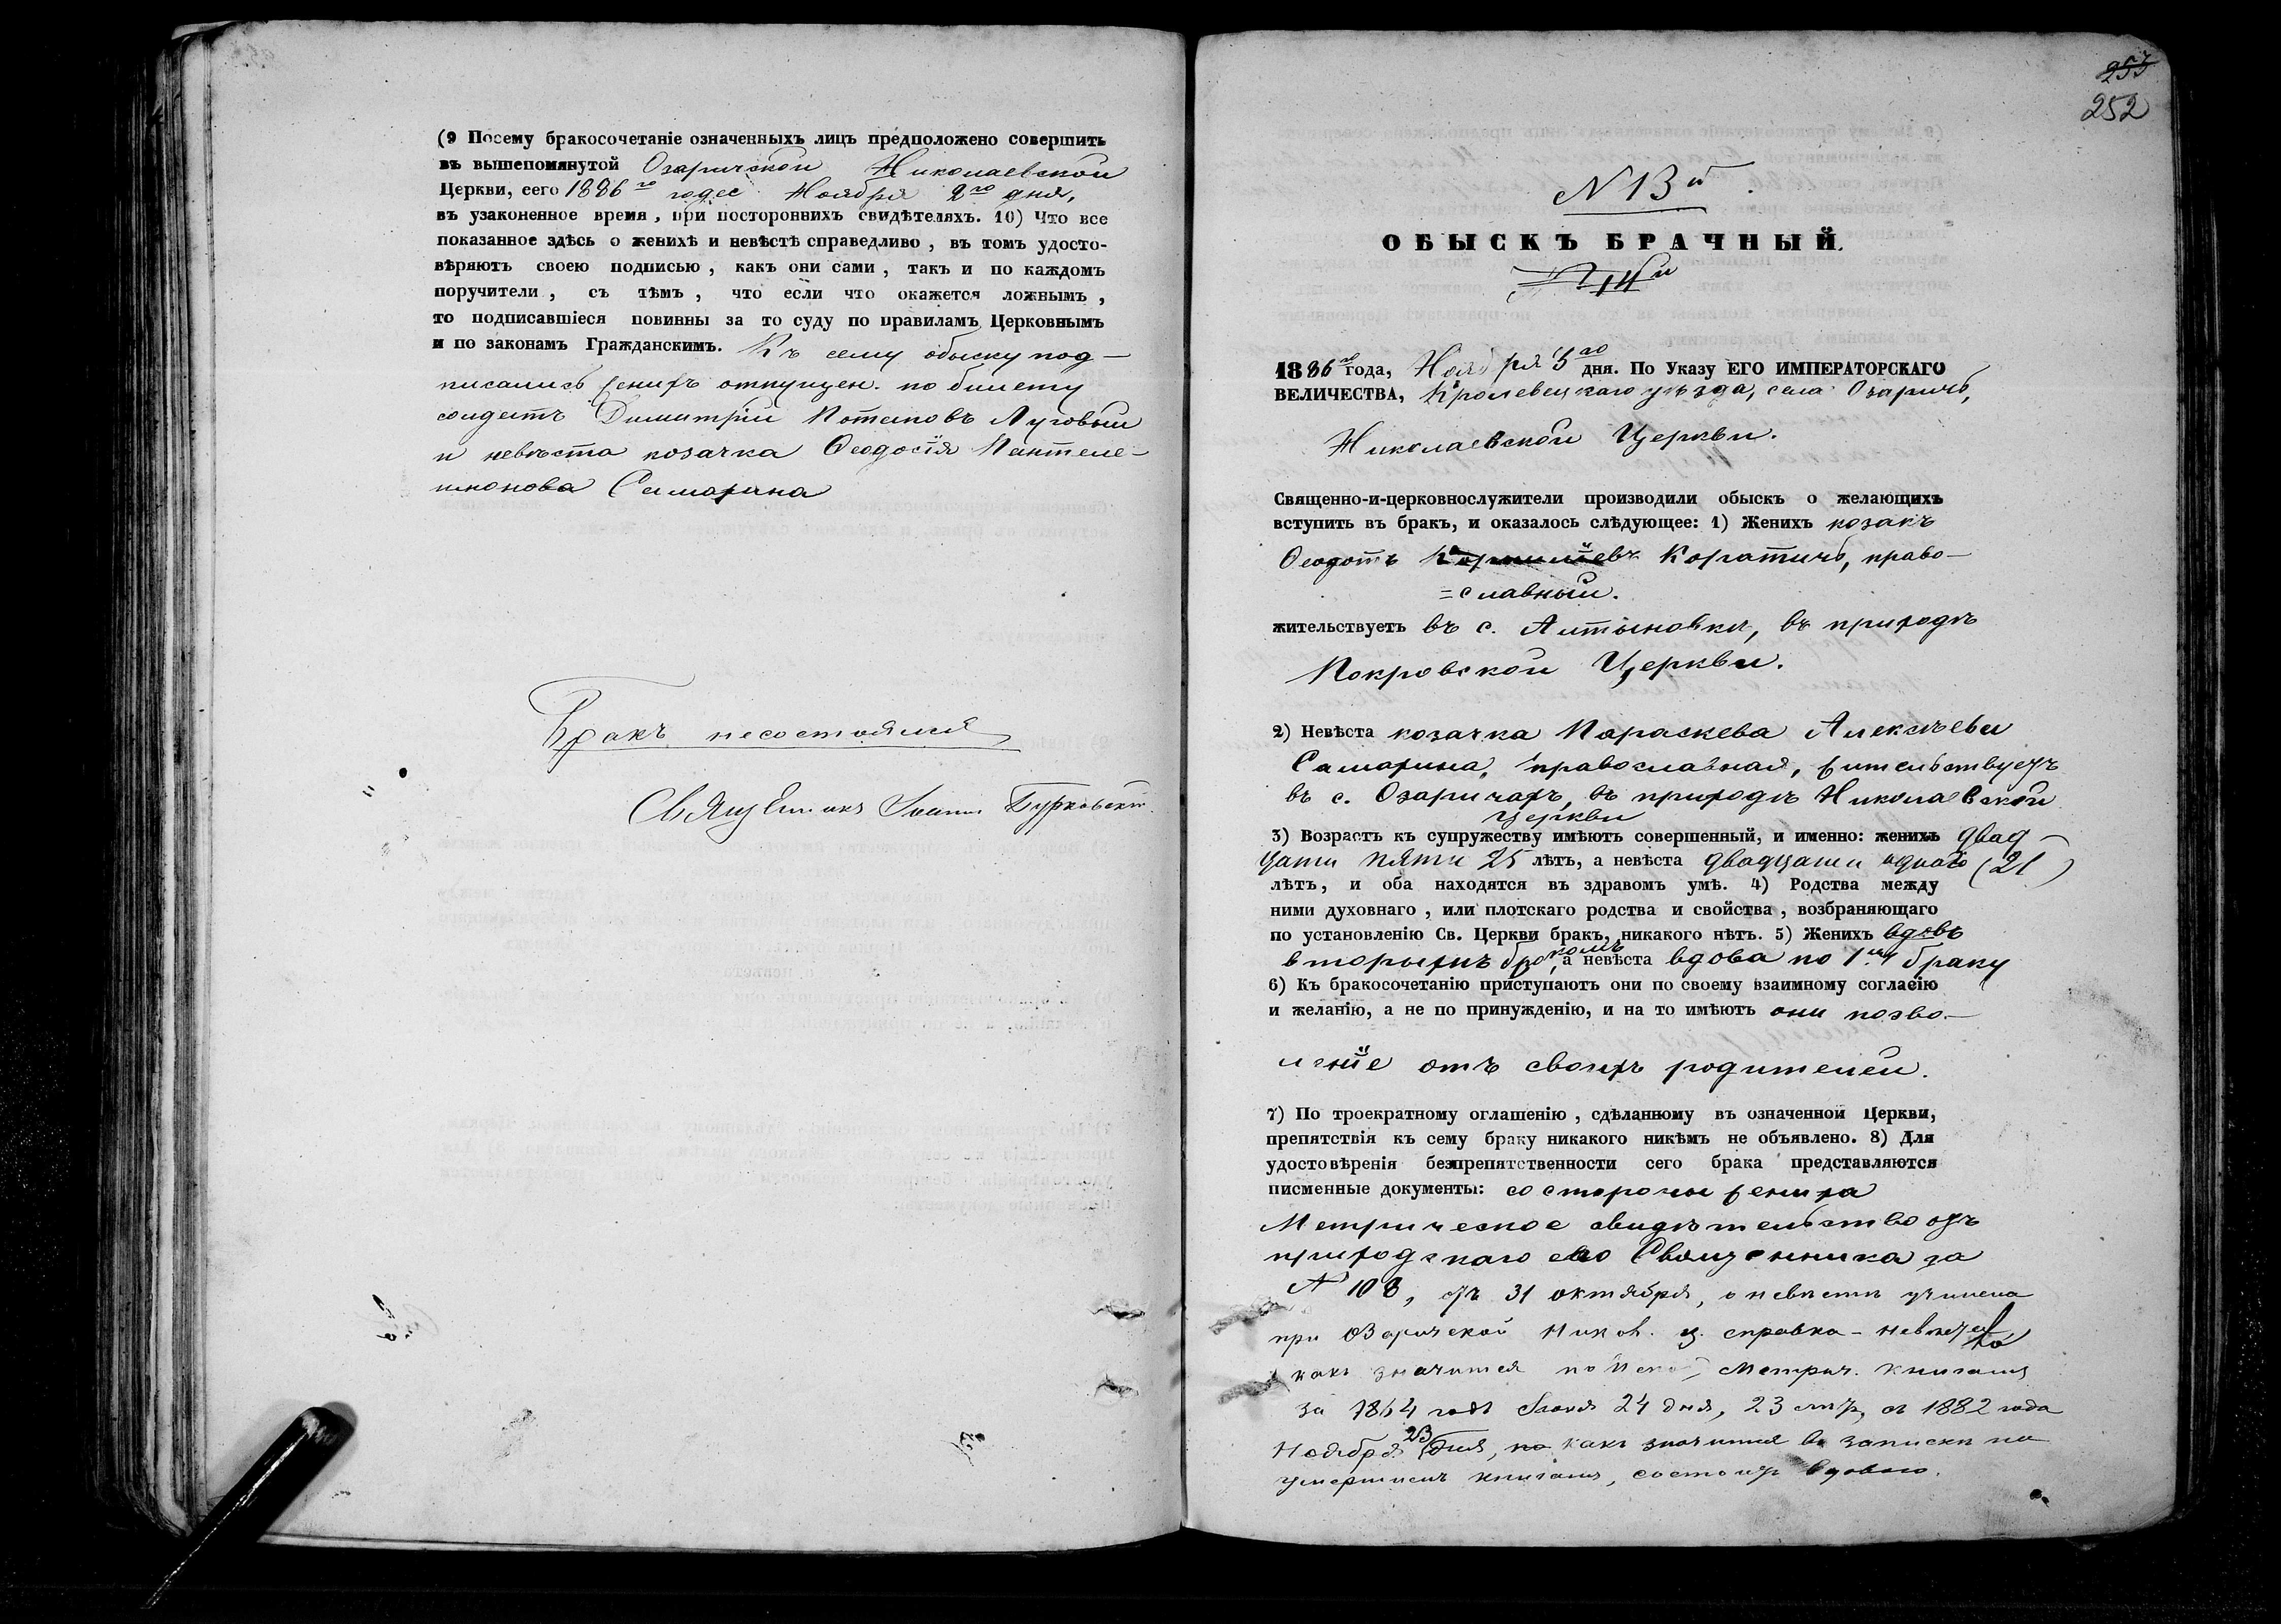 (9 Посему бракосочетаніе означенныхъ лицъ предположено совершить
въ вышепомянутой Озаричской Николаевской
Церкви, сего 1886го года Ноября 2го дня,
въ узаконенное время, при постороннихъ свидѣтеляхъ. 10) Что все
показанное здѣсь о женихѣ и невѣстѣ справедливо, въ томъ удосто-
вѣряютъ своею подписью, какъ они сами, такъ и по каждомъ
поручители, съ тѣмъ, что если что окажется ложнымъ,
то подписавшіеся повинны за то суду по правиламъ Церковнымъ
и по законамъ Гражданскимъ. Къ сему обыску под-
писались женихъ отпущен. по билету
солдатъ Димитрій Потаповъ Луговый
и невѣста козачка Ѳеодосія Пантеле-
имонова Самарина
Бракъ несостоялся
Священникъ Іоаннъ Бурковскій.
253
252
N 13й.
ОБЫСКЪ БРАЧНЫЙ.
1886го года, Ноября 5го дня. По Указу ЕГО ИМПЕРАТОРСКАГО
ВЕЛИЧЕСТВА, Кролевецкаго уѣзда, села Озаричъ,
Николаевской Церкви.
Священно-и-церковнослужители производили обыскъ о желающихъ
вступить въ бракъ, и оказалось слѣдующее: 1) Женихъ козакъ
Ѳеодотъ Коратичъ, право-
=славный.
жительствуетъ въ с. Алтыновки, въ приходѣ
Покровской Церкви.
2) Невѣста козачка Параскева Алексѣева
Самарина, православная, жительствуетъ
въ с. Озаричахъ, въ приходѣ Николаевской
Церкви
3) Возрастъ къ супружеству имѣютъ совершенный, и именно: женихъ двад-
цати пяти 25 лѣтъ, а невѣста двадцати одного (21)
лѣтъ, и оба находятся въ здравомъ умѣ. 4) Родства между
ними духовнаго, или плотскаго родства и свойства, возбраняющаго
по установленію Св. Церкви бракъ, никакого нѣтъ. 5) Женихъ вдовъ
вторымъ бракомъ, а невѣста вдова по 1му браку
6) Къ бракосочетанію приступаютъ они по своему взаимному согласію
и желанію, а не по принужденію, и на то имѣютъ они позво-
леніе отъ своихъ родителей.
7) По троекратному оглашенію, сдѣланному въ означенной Церкви,
препятствія къ сему браку никакого никѣмъ не объявлено. 8) Для
удостовѣренія безпрепятственности сего брака представляются
писменные документы: со стороны жениха
Метрическое свидѣтельство отъ
приходскаго его Священника за
N 108, отъ 31 октября, о невѣстѣ учинена
при Озаричской Никол. ц. справка - невѣста
какъ значится по Метрич. книгамъ
за 1864 годъ 24 дня, 23 лѣтъ, съ 1882 года
Ноября 23 дня, какъ значится въ записки по
умершимъ книгамъ, состоитъ вдовою.